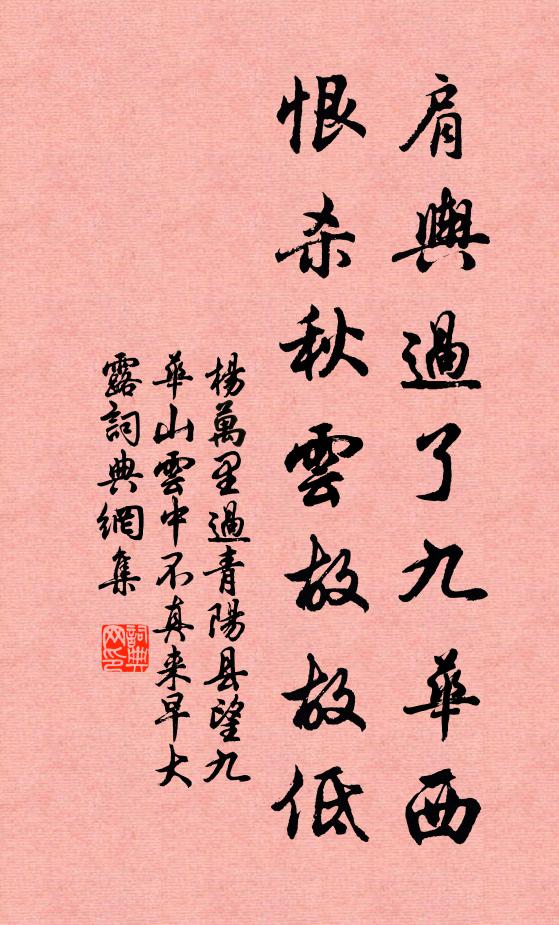 肩輿過了九華西
恨杀秋雲故故低
楊萬里過青陽县望九
華山雲中不真来早大
露詞典網集
詞典
网印